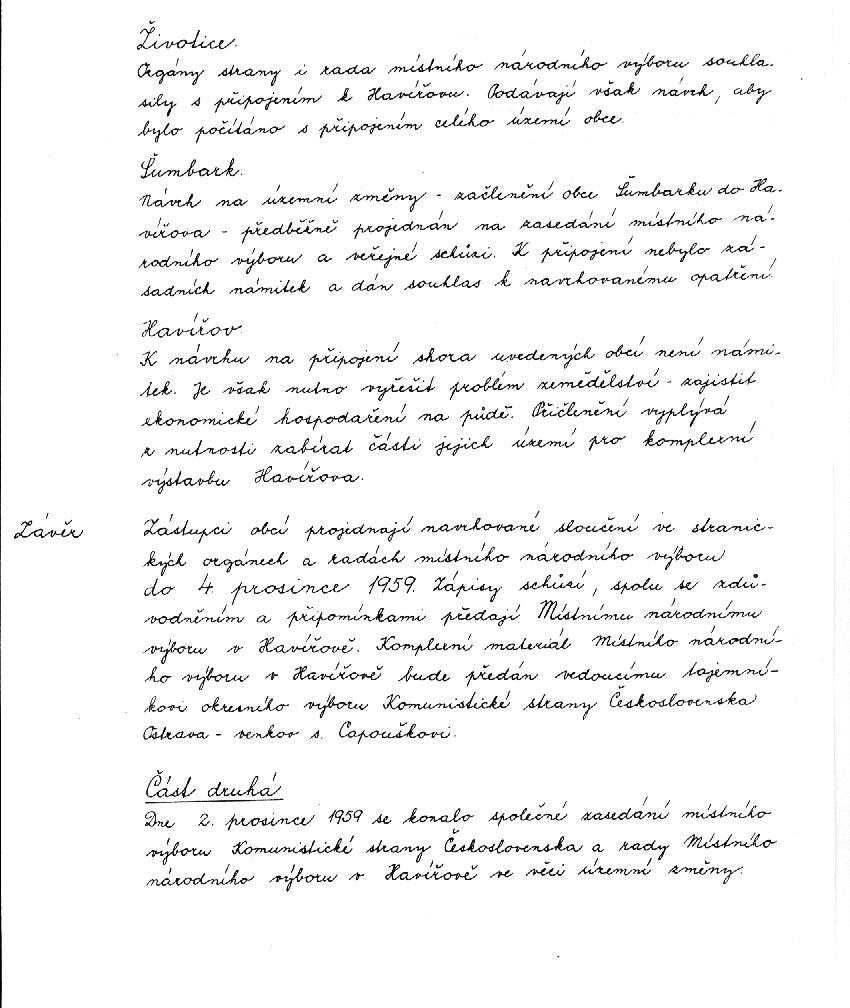 Životice.
Orgány strany i rada místního národního výboru souhla-
sily s připojením k Havířovu. Podávají však návrh, aby
bylo počítáno s připojením celého území obce.
Šumbark.
Návrh na územní změny - začlenění obce Šumbarku do Ha-
vířova - předběžně projednán na zasedání místního ná-
rodního výboru a veřejné schůzi. K připojení nebylo zá-
sadních námitek a dán souhlas k navrhovanému opatření.
Havířov.
K návrhu na připojení shora uvedených obcí není námi-
tek. Je však nutno vyřešit problém zemědělství - zajistit
ekonomické hospodaření na půdě. Přičlenění vyplývá
z nutnosti zabírat části jejich území pro komplexní
výstavbu Havířova.
Závěr
Zástupci obcí projednají navrhované sloučení ve stranic-
kých orgánech a radách místního národního výboru
do 4. prosince 1959. Zápisy schůzí, spolu se zdů-
vodněním a připomínkami předají Místnímu národnímu
výboru v Havířově. Komplexní materiál Místního národní-
ho výboru v Havířově bude předán vedoucímu tajemní-
kovi okresního výboru Komunistické strany Československa
Ostrava - venkov s. Capouškovi.
Část druhá
Dne 2. prosince 1959 se konalo společné zasedání místního
výboru Komunistické strany Československa a rady Místního
národního výboru v Havířově ve věci územní změny.